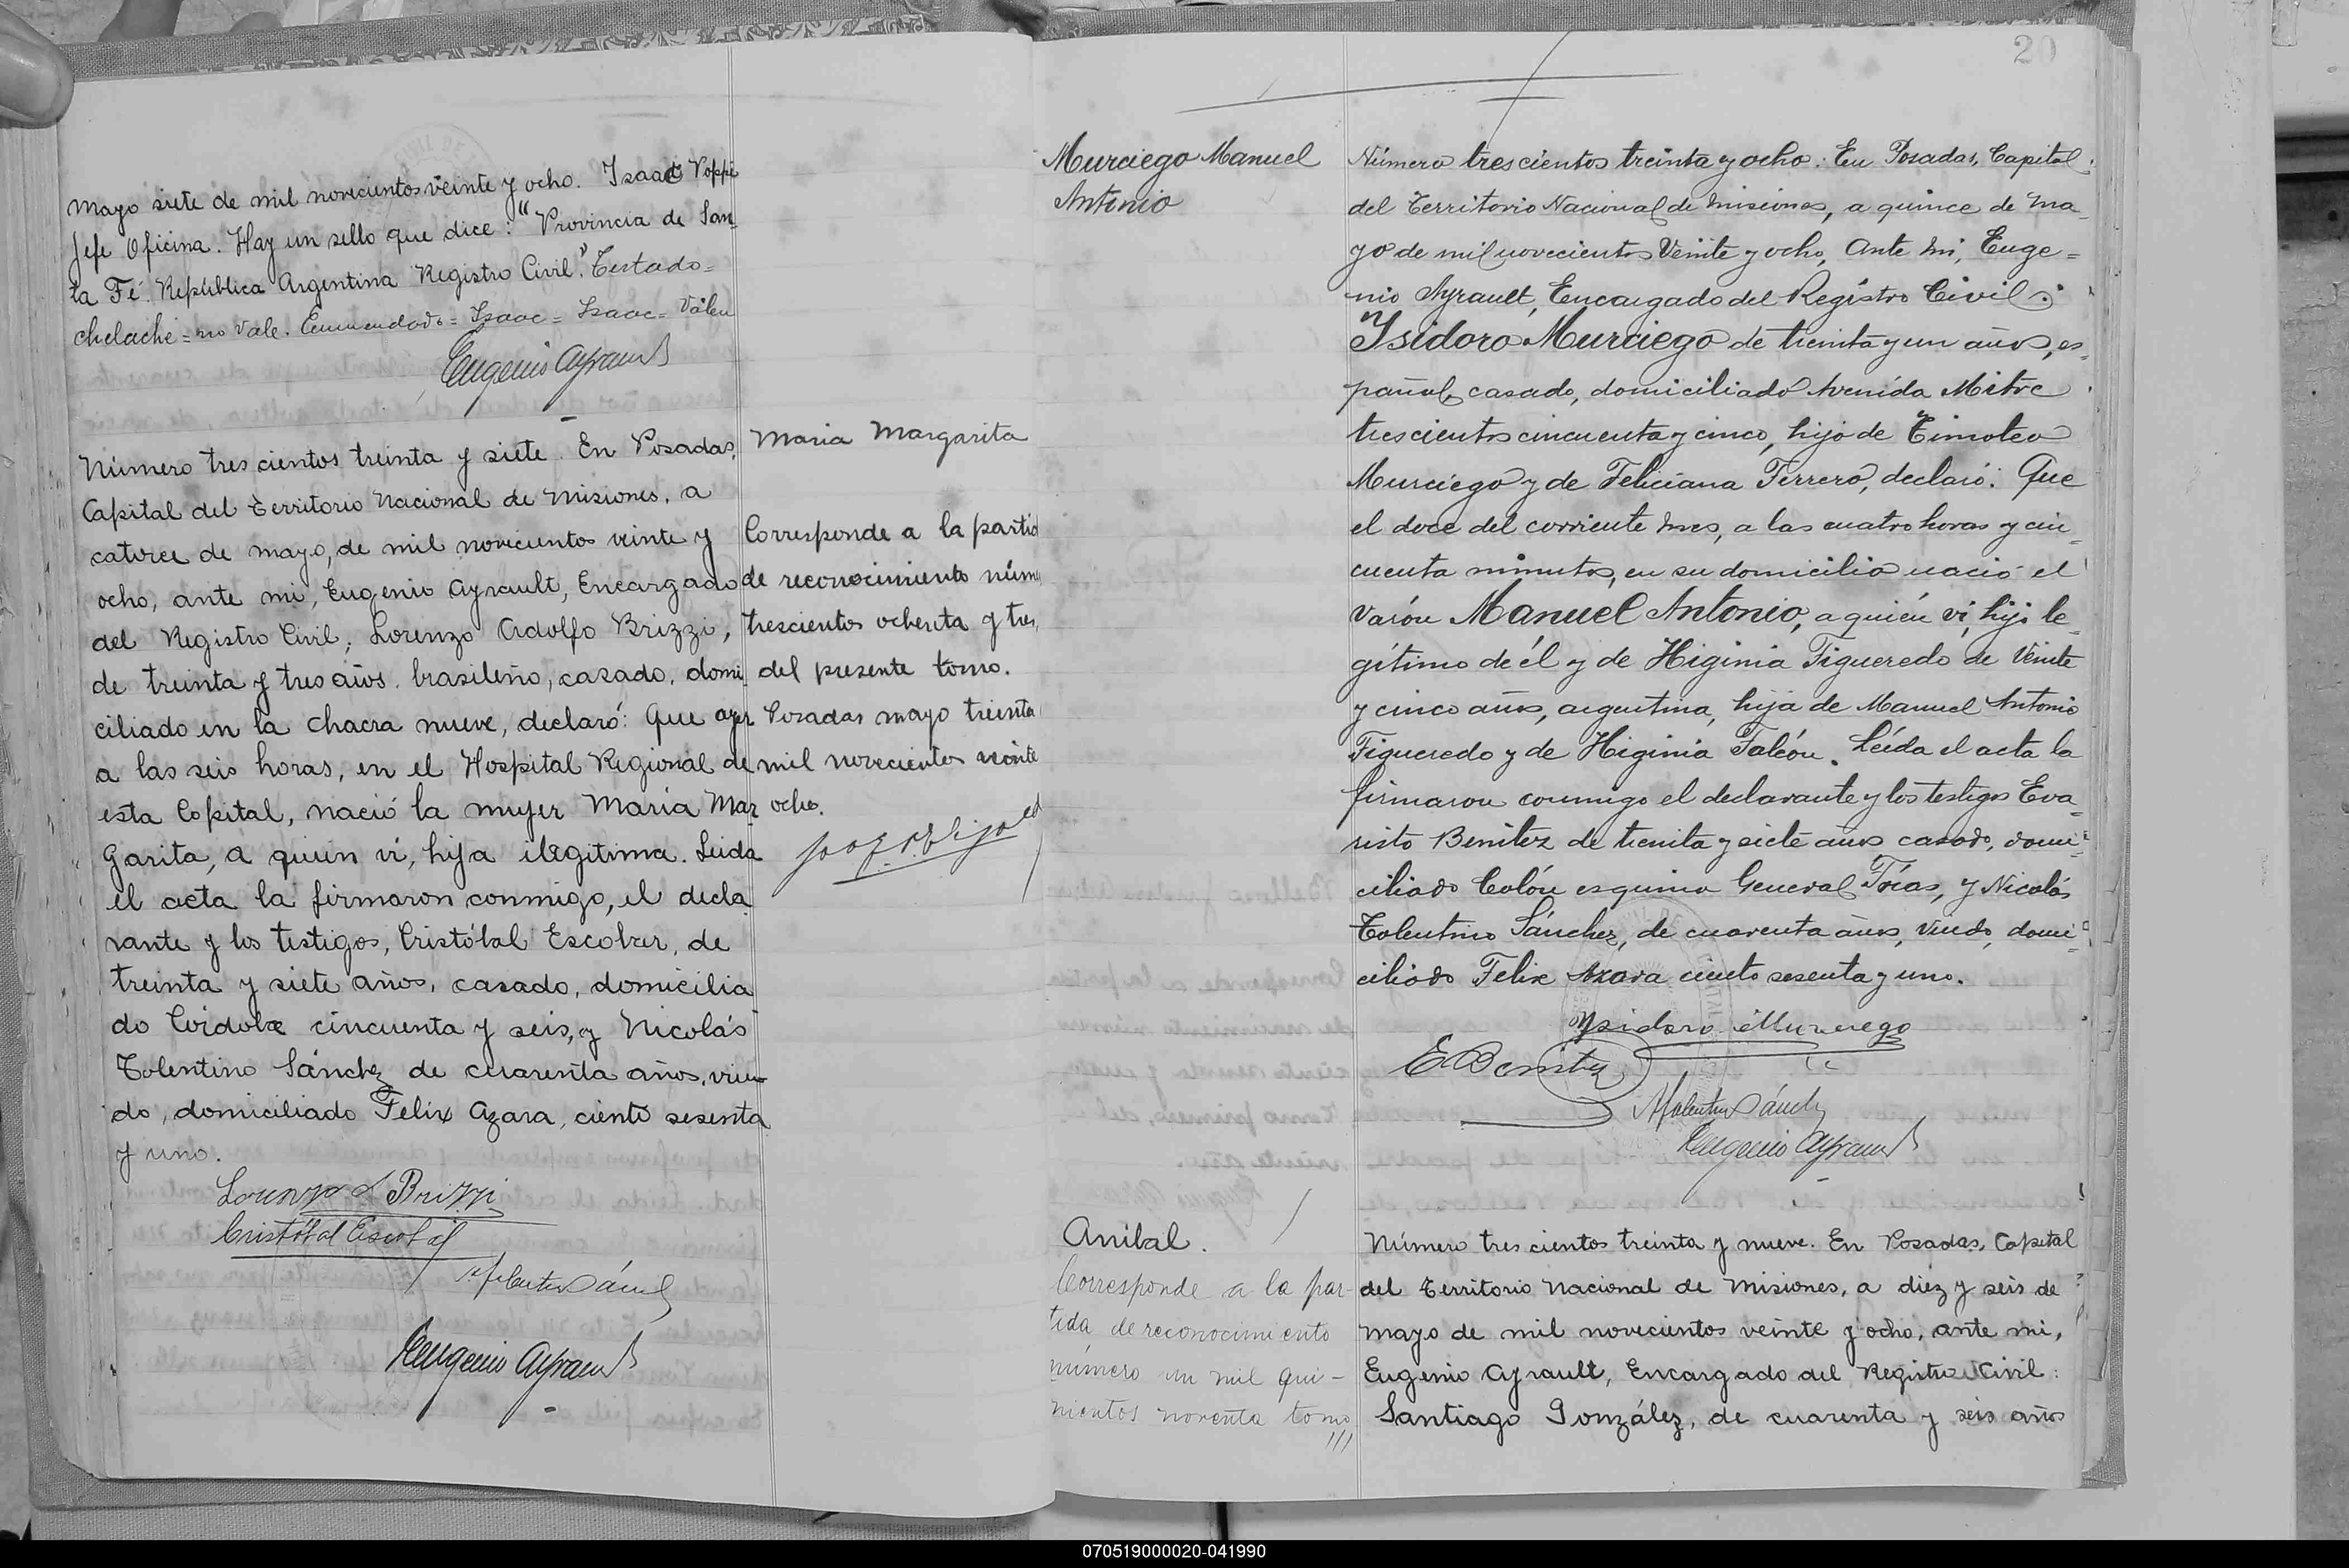 mayo siete de mil novecientos veinte y ocho. Isaac Poppi
Jefe Oficina. Hay un sello que dice: "Provincia de San
ta Fé. República Argentina Registro Civil." Testado=
chelache=no vale. Enmendado=Isaac=Isaac=Valen
Eugenio Ayrault
Número tres cientos treinta y siete. En Posadas,
Capital del Territorio Nacional de Misiones, a
catorce de mayo, de mil novecientos veinte y
ocho, ante mi, Eugenio Ayrault, Encargado
del Registro Civil; Lorenzo Adolfo Brizzi,
de treinta y tres años, brasileño, casado, domi
ciliado en la chacra nueve, declaró: Que ayer
a las seis horas, en el Hospital Regional de
esta Capital, nació la mujer Maria Mar
garita, a quien vi, hija ilegitima. Leida
el acta la firmaron conmigo, el decla
rante y los testigos, Cristóbal Escobar, de
treinta y siete años, casado, domicilia
do Córdoba cincuenta y seis, y Nicolás
Tolentino Sánchez de cuarenta años, viu
do, domiciliado Felix Azara, ciento sesenta
y uno.
Lorenzo A Brizzi
Cristóbal Escobar
NTolentino Sánchez
Eugenio Ayrault
Maria Margarita
Corresponde a la partid
de reconocimiento núm
trescientos ochenta y tres
del presente tomo.
Posadas mayo treinta
mil novecientos veinte
ocho.
20
Murciego Manuel
Antonio
Número trescientos treinta y ocho. En Posadas, Capital
del Territorio Nacional de Misiones, a quince de ma
yo de mil novecientos veinte y ocho, ante mi, Euge=
nio Ayrault, Encargado del Registro Civil:
Isidoro Murciego de treinta y un años, es
pañol, casado, domiciliado Avenida Mitre
trescientos cincuenta y cinco, hijo de Timoteo
Murciego y de Feliciana Ferrero, declaró: Que
el doce del corriente mes, a las cuatro horas y cin
cuenta minutos, en su domicilio nació el
varón Manuel Antonio, a quién vi, hijo le
gítimo de él y de Higinia Figueredo de veinte
y cinco años, argentina, hija de Manuel Antonio
Figueredo y de Higinia Falcón. Leída el acta la
firmaron conmigo el declarante y los testigos Eva
risto Benitez de treinta y siete años casado, domi
ciliado Colón esquina General Frías, y Nicolás
Tolentino Sánchez, de cuarenta años, viudo, domi
ciliado Felix Azara ciento sesenta y uno.
Ysidoro Murciego
E Benitez
NTolentino Sánchez
Eugenio Ayrault
Anibal.
Corresponde a la par-
tida de reconocimiento
número un mil qui-
nientos noventa tomo
III
Número tres cientos treinta y nueve. En Posadas, Capital
del Territorio Nacional de Misiones, a diez y seis de
mayo de mil novecientos veinte y ocho, ante mi,
Eugenio Ayrault, Encargado del Registro Civil:
Santiago González, de cuarenta y seis años
070519000020-041990